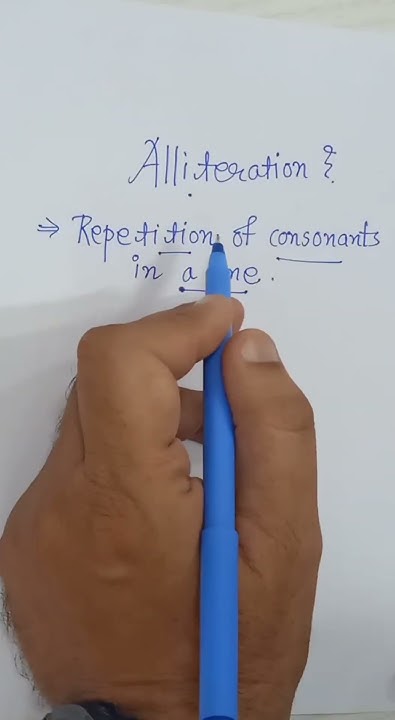 Alliteration :
⇒ Repetition of consonants
in a